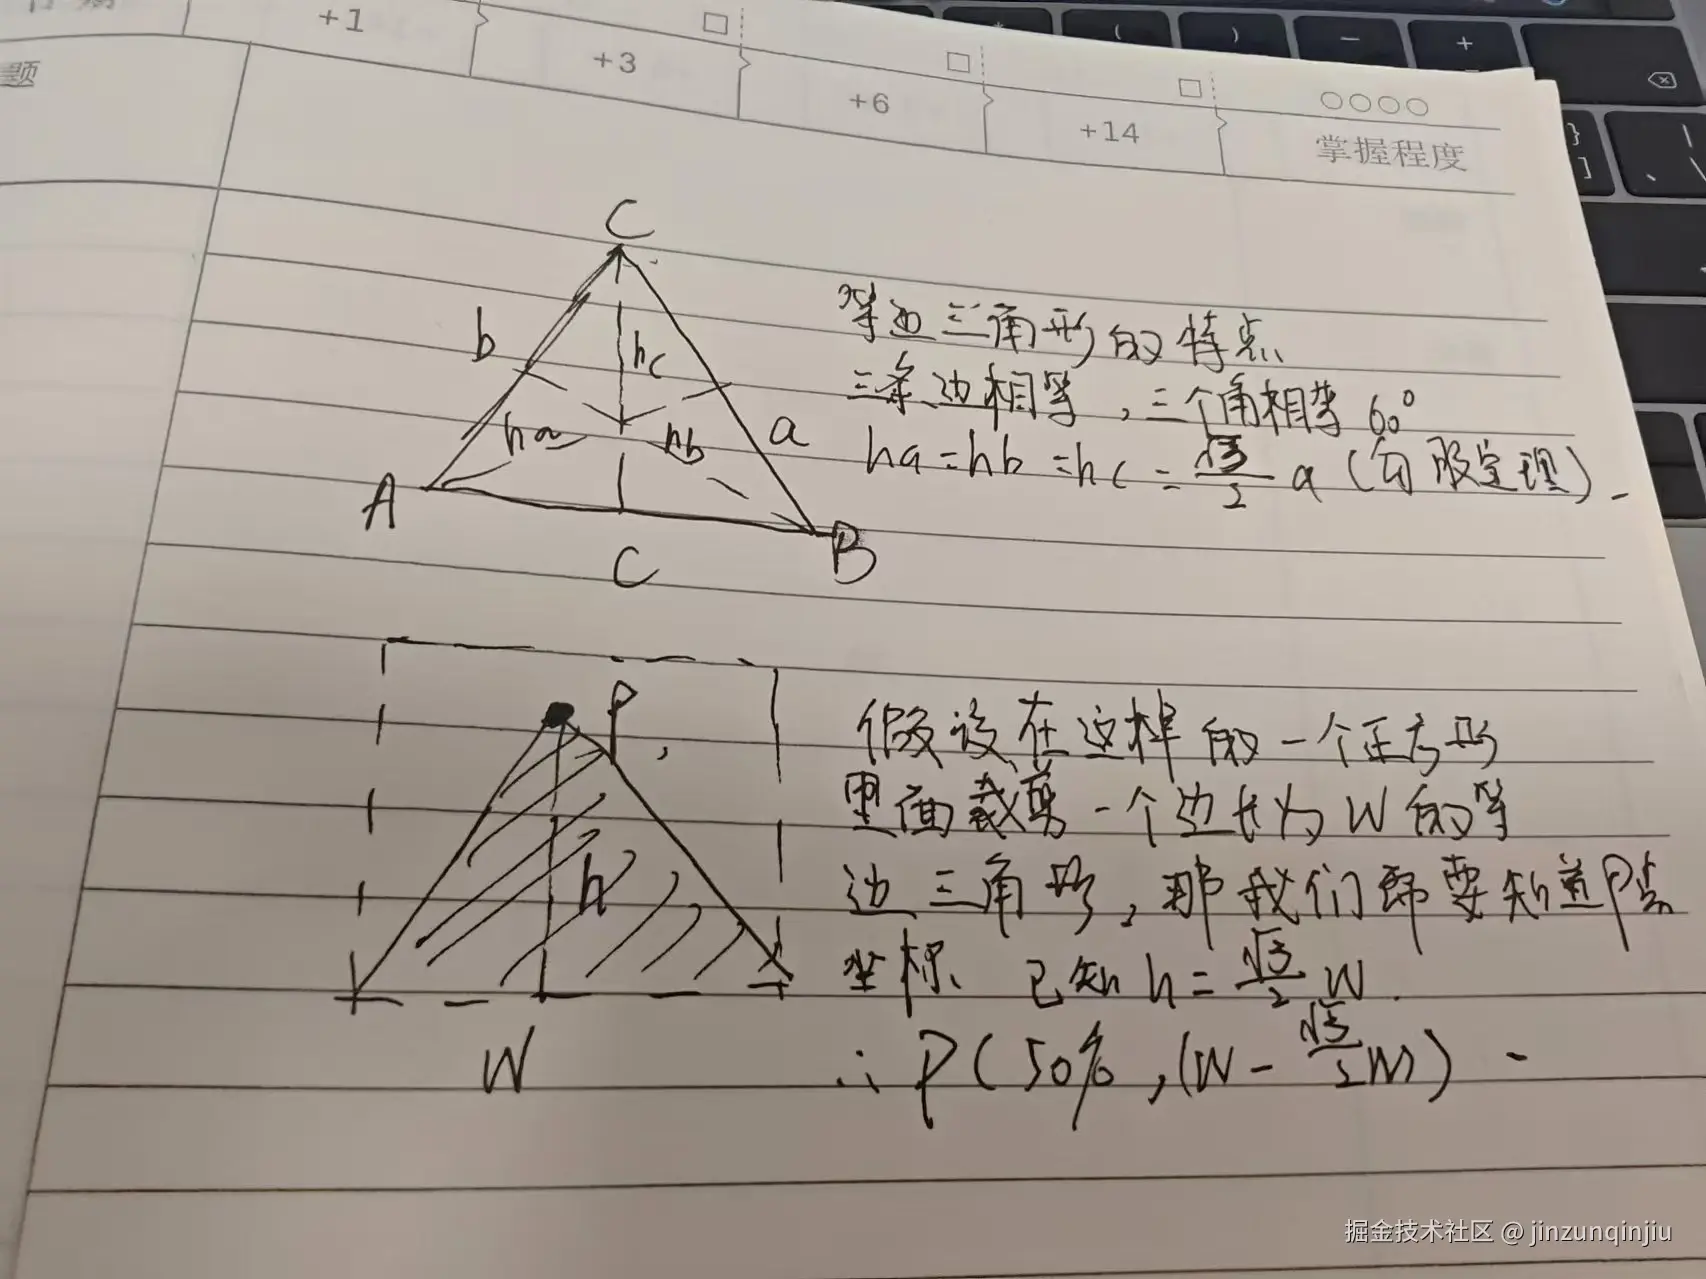 题
+1
+3
+6
+14
掌握程度
C
b
hc
ha
hb
a
A
B
C
等边三角形的特点
三条边相等，三个角相等 60°
ha = hb = hc = √3/2 a (勾股定理).
P
h
W
假设在这样的一个正方形
里面裁剪一个边长为 W 的等
边三角形，那我们即要知道P点
坐标、已知 h = √3/2 W.
∴ P(50%, (W - √3/2 W)
掘金技术社区 @ jinzunqinjiu